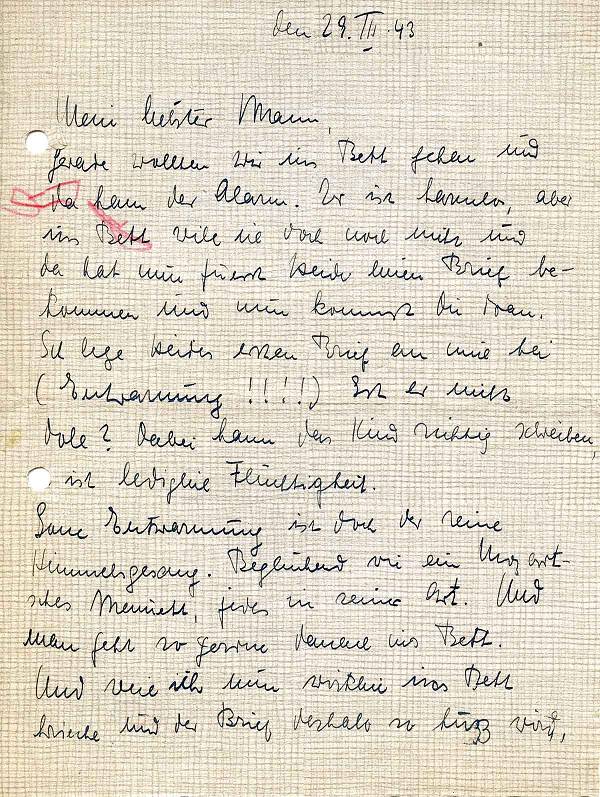 den 29. III. 43
Mein liebster Mann,
gerade wollten wir ins Bett gehen und
da kam der Alarm. Er ist harmlos, aber
ins Bett will sie doch noch nicht und
da hat nun zuerst Heidi einen Brief be-
kommen und nun kommst Du dran.
Ich lege Heides ersten Brief an mich bei
(Entwarnung !!!!) Ist er nicht
dole? Dabei kann das Kind richtig schreiben,
ist lediglich Flüchtigkeit.
So ne Entwarnung ist doch der reine
Himmelsgesang. Beglückend wie ein Mozart-
sches Menuett, jedes in seiner Art. Und
man geht so gerne danach ins Bett.
Und weil ich nun wirklich ins Bett
krieche und der Brief deshalb so kurz wird,